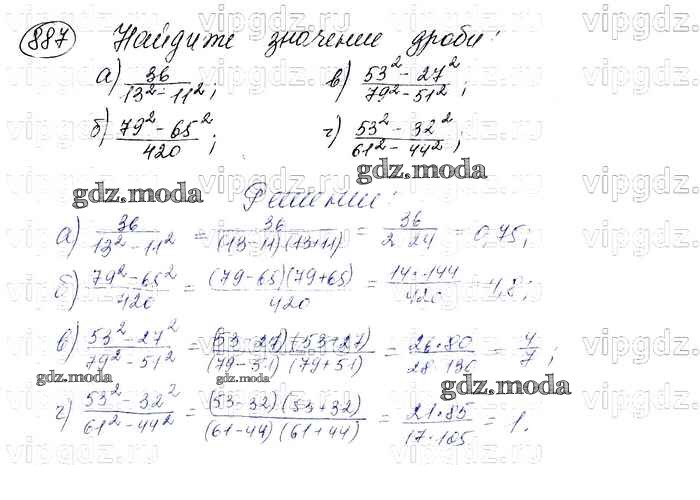 887 Найдите значение дроби:
а) 36 / (13² - 11²); в) (53² - 27²) / (79² - 51²);
б) (79² - 65²) / 420; г) (53² - 32²) / (61² - 44²);
gdz.moda Решение: gdz.moda
а) 36 / (13² - 11²) = 36 / ((13-11)(13+11)) = 36 / (2·24) = 0,75;
б) (79² - 65²) / 420 = ((79-65)(79+65)) / 420 = (14·144) / 420 = 4,8;
в) (53² - 27²) / (79² - 51²) = ((53-27)(53+27)) / ((79-51)(79+51)) = (26·80) / (28·130) = 4/7;
gdz.moda gdz.moda gdz.moda
г) (53² - 32²) / (61² - 44²) = ((53-32)(53+32)) / ((61-44)(61+44)) = (21·85) / (17·105) = 1.
vipgdz.ru